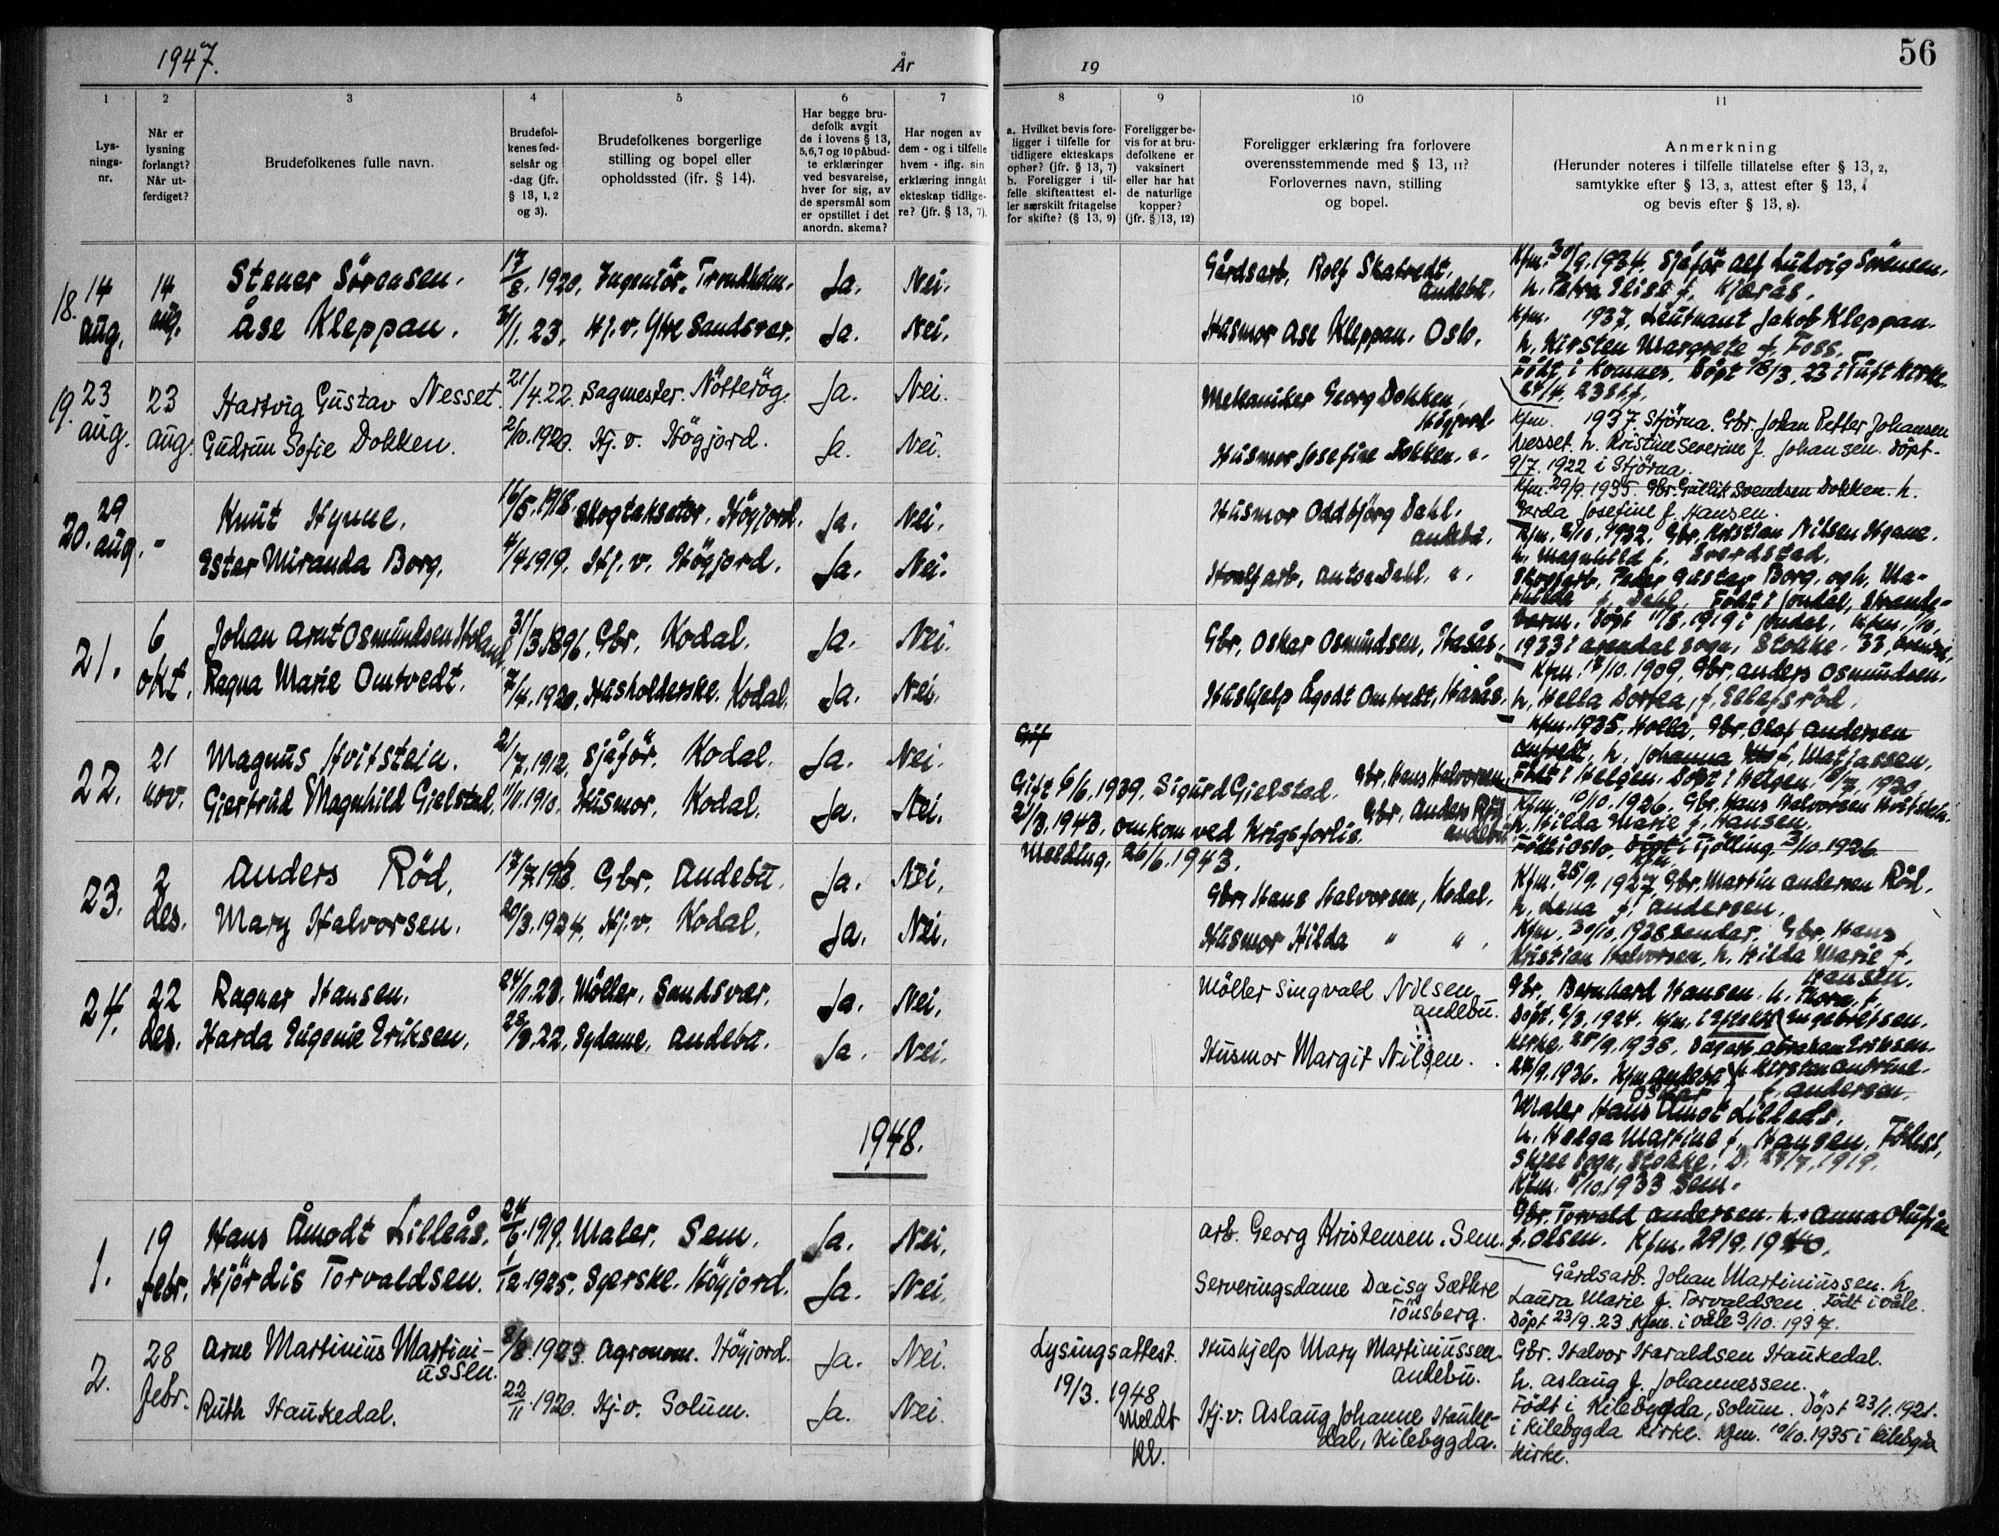 1947.
År
19
56
1
2
3
4
5
6
7
8
9
10
11
Lys-
nings-
nr.
Når er
lysning
forlangt?
Når ut-
ferdiget?
Brudefolkenes fulle navn.
Brudefol-
kenes fød-
selsår og
-dag (jfr.
§ 13, 1, 2
og 3).
Brudefolkenes borgerlige
stilling og bopel eller
opholdssted (ifr. § 14).
Har begge bru-
defolk avgit
de i lovens § 13,
5,6,7 og 10 påbud-
te erklæringer
ved besvarelse,
hver for sig, av
de spørsmål som
er opstillet i det
anordn. skema?
Har nogen av
dem - og i tilfelle
hvem - iflg. sin
erklæring inngåt
ekteskap tidlige-
re? (jfr. § 13, 7).
a. Hvilket bevis fore-
ligger i tilfelle for
tidligere ekteskaps
ophør? (jfr. § 13, 7)
b. Foreligger i til-
felle skifteattest el-
ler særskilt fritagelse
for skifte? (§ 13, 9)
Foreligger be-
vis for at bru-
defolkene er
vaksinert
eller har hat
de naturlige
kopper?
(jfr. § 13, 12)
Foreligger erklæring fra forlovere
overensstemmende med § 13, 11?
Forlovernes navn, stilling
og bopel.
Anmerkning
(Herunder noteres i tilfelle tillatelse efter § 13, 2,
samtykke efter § 13, 3, attest efter § 13, 4
og bevis efter § 13, 8).
18. 14 aug. 14 aug. Stener Sörensen. 17/8. 1920. Ingeniör. Trondheim. Ja. Nei. Gårdsarb. Rolf Skatvedt, Andebu.
Åse Kleppan. 1. 23. Hj. v. Ytre Sandsvær. Ja. Nei. Husmor Åse Kleppan. Oslo.
Kfm. 30/9. 1934. Sjåför Alf Ludvig Sörensen.
h. Petra Elise f. Kjærås.
Kfm. 1937, Leutnant Jakob Kleppan.
h. Kirsten Margrete f. Foss.
Födt i Komnes. Döpt 18/3. 23 i Tuft kirke.
19. 23 aug. 23 aug. Hartvig Gustav Nesset. 21/4. 22. Sagmester. Nötteröy. Ja. Nei. Mekaniker Georg Dokken, Högjord.
Gudrun Sofie Dokken. 2/10. 1920. Hj. v. Högjord. Ja. Nei. Husmor Josefine Dokken. "
Kfm. 1937. Stjörna. Gbr. Johan Petter Johansen
Nesset. h. Kristine Severine f. Johansen. Döpt
9/7. 1922 i Stjörna.
Kfm. 29/9. 1935. Gbr. Gullik Svendsen Dokken. h.
Gerda Josefine f. Hansen.
20. 29 aug. - Knut Hynne. 16/5. 1918. Skogtaksator. Högjord. Ja. Nei. Husmor Oddbjörg Dahl. Andebu.
Ester Miranda Borg. 4/4. 1919. Hj. v. Högjord. Ja. Nei. Hvalfarb. Anton Dahl. "
Kfm. 2/10. 1932. Gbr. Kristian Nilsen Hynne.
h. Magnhild f. Sverdstad.
Skogsarb. Peder Gustav Borg. og h. Ma-
thilde f. Dahl. Födt i Jondal, Strande-
barm. Döpt 11/5. 1919 i Jondal. Kfm.
1933 i Arendal sogn, Stokke.
21. 6 okt. Johan Arnt Osmundsen Holand. 31/3. 1896. Gbr. Kodal. Ja. Nei. Gbr. Oskar Osmundsen, Hasås.
Ragna Marie Omtvedt. 7/4. 1920. Husholderske. Kodal. Ja. Nei. Hushjelp Ågodt Omtvedt, Hasås.
Kfm. 17/10. 1909. Gbr. Anders Osmundsen.
h. Hella Dortea, f. Ellefsröd.
Kfm. 1935. Holla. Gbr. Olaf Andersen
Omtvedt, h. Johanna f. Matjassen.
Födt i Helgen. Döpt i Helgen. 18/7. 1920.
22. 21 nov. Magnus Hvitstein. 21/7. 1912. Sjåför. Kodal. Ja. Nei. Gbr. Hans Halvorsen,
Gjertrud Magnhild Gjelstad. 11/11. 1910. Husmor. Kodal. Ja. Nei. Gbr. Anders Röd, Andebu
Gift 6/6. 1939. Sigurd Gjelstad.
21/3. 1943. omkom ved Krigsforlis.
Melding. 26/6. 1943.
Kfm. 10/10. 1926. Gbr. Hans Halvorsen Hvitstein.
h. Hilda Marie f. Hansen.
Födt i Oslo. Kfm. i Tjölling. 3/10. 1926
23. 2 des. Anders Röd. 17/7. 1913. Gbr. Andebu. Ja. Nei. Gbr. Hans Halvorsen, Kodal.
Mary Halvorsen. 20/3. 1924. Hj. v. Kodal. Ja. Nei. Husmor Hilda " "
Kfm. 25/9. 1927. Gbr. Martin Andersen Röd.
h. Lena f. Andersen.
Kfm. 30/10. 1938 Sandar. Gbr. Hans
Kristian Halvorsen, h. Hilda Marie f.
Hansen.
24. 22 des. Ragnar Hansen. 24/1. 23. Möller. Sandsvær. Ja. Nei. Möller Singvald Nilsen Andebu.
Harda Eugenie Eriksen. 28/8. 22. Sydame. Andebu. Ja. Nei. Husmor Margit Nilsen.
Gbr. Bernhard Hansen. h. Thora f.
Engebretsen. Döpt. 2/3. 1924. Kfm. i Efteløt
kirke. 25/9. 1938. Dagarb. Abraham Eriksen.
27/9. 1936. Kfm Andebu h. Kirsten Andrine
f. Andersen.
1948.
1. 19 febr. Hans Åmodt Lilleås. 24/6. 1919. Maler. Sem. Ja. Nei. Arb. Georg Kristensen. Sem.
Hjördis Torvaldsen. 1/12. 1925. Syerske. Högjord. Ja. Nei. Serveringsdame Daisy Sæthre Tönsberg.
Maler Hans Oskar Åmot Lilleås.
h. Helga Martine f. Hansen. Födest.
Skjee sogn, Stokke. D. 27/7. 1919.
Kfm. 8/10. 1933 Sem.
Gbr. Torvald Andersen. h. Anna Olufine
f. Olsen. Kfm. 29/9. 1940.
2. 28 febr. Arne Martinius Martini-
ussen. 8/8. 1923. Agronom. Högjord. Ja. Nei. Lysingsattest. Hushjelp Mary Martiniussen. Andebu.
Ruth Haukedal. 22/11. 1920. Hj. v. Solum. Ja. Nei. 19/3. 1948 Meldt Kl. Hj. v. Aslaug Johanne Hauke-
dal, Kilebygda.
Gårdsarb. Johan Martiniussen. h.
Laura Marie f. Torvaldsen. Födt i Våle.
Döpt 23/9. 23 Kfm. i Våle 3/10. 1937.
Gbr. Halvor Haraldsen Haukedal.
h. Aslaug f. Johannessen.
Födt i Kilebygda, Solum. Döpt 23/1. 1921.
i Kilebygda kirke. Kfm. 10/10. 1935 i Kilebygda
kirke.